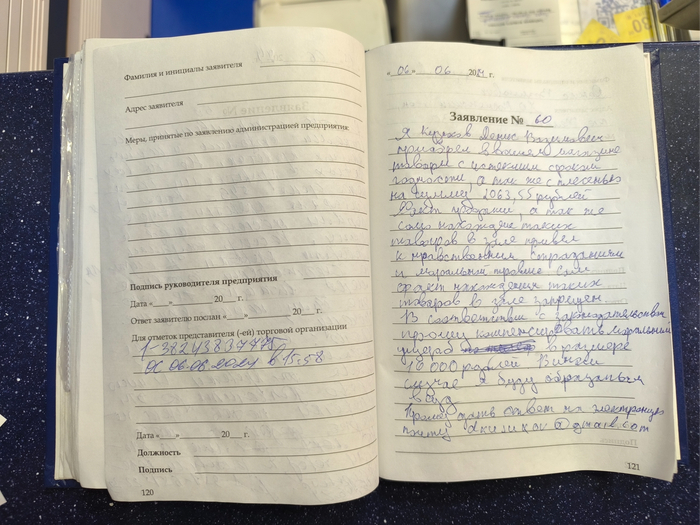 Фамилия и инициалы заявителя
Адрес заявителя
Меры, принятые по заявлению администрацией предприятия:
Подпись руководителя предприятия
Дата «___»________ 20___ г.
Ответ заявителю послан «___»________ 20___ г.
Для отметок представителя (-ей) торговой организации
06.06.2024 в 15:58
Дата «___»________ 20___ г.
Должность
Подпись
120
«06» 06 2024 г.
Заявление № 60
Я Денис
приобрел в вашем магазине
товары с истекшим сроком
годности, а так же с плесенью
на сумму 2063,55 рублей
Факт продажи, а так же
само нахождение таких
товаров в зале привел
к нравственным страданиям
и моральной травме. Сам
факт нахождения таких
товаров в зале запрещен.
В соответствии с законодательством
прошу компенсировать моральный
ущерб в размере
10 000 рублей. В ином
случае я буду обращаться
в суд
Прошу дать ответ на электронную
почту @gmail.com
121